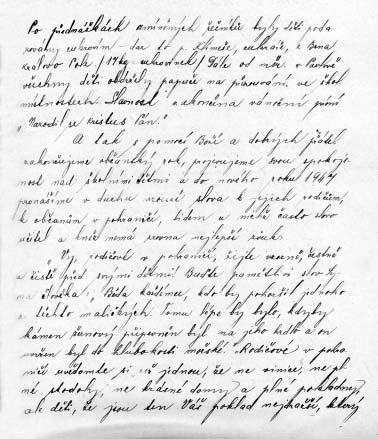 Po přednáškách zmíněných řečníků byly děti poda-
rovány cukrovím - dar to p. Chmele, cukráře, z Brna
Královo Pole. /17kg cukrovinek/ Dále od mšk. v Pavlově
všechny děti obdržely papuče na přezouvání ve škol.
místnostech. Slavnost zakončena vánoční písní
"Narodil se Kristus Pán."
A tak s pomocí Boží a dobrých přátel
zakončujeme občanský rok, projevujeme svou spokoje-
nost nad školními dětmi a do nového roku 1947
pronášíme v duchu vroucí slova k jejich rodičům,
k občanům v pohraničí, lidem u nichž často slovo
učitel a kněz nemá zrovna nejlepší zvuk.
"Vy, rodičové v pohraničí, žijte vzorně, čestně
a čistě před svými dětmi! Buďte pamětlivi slov Sy-
na Člověka: "Běda každému, kdo by pohoršil jednoho
z těchto maličkých. Tomu lépe by bylo, kdyby
kámen žernový připevněn byl na jeho hrdlo a on
vržen byl do hlubokosti mořské. Rodičové v pohra-
ničí uvědomte si už jednou, že ne vinice, ne pl-
né stodoly, ne krásné domy a plné pokladny,
ale děti, že jsou ten Váš poklad nejdražší, který